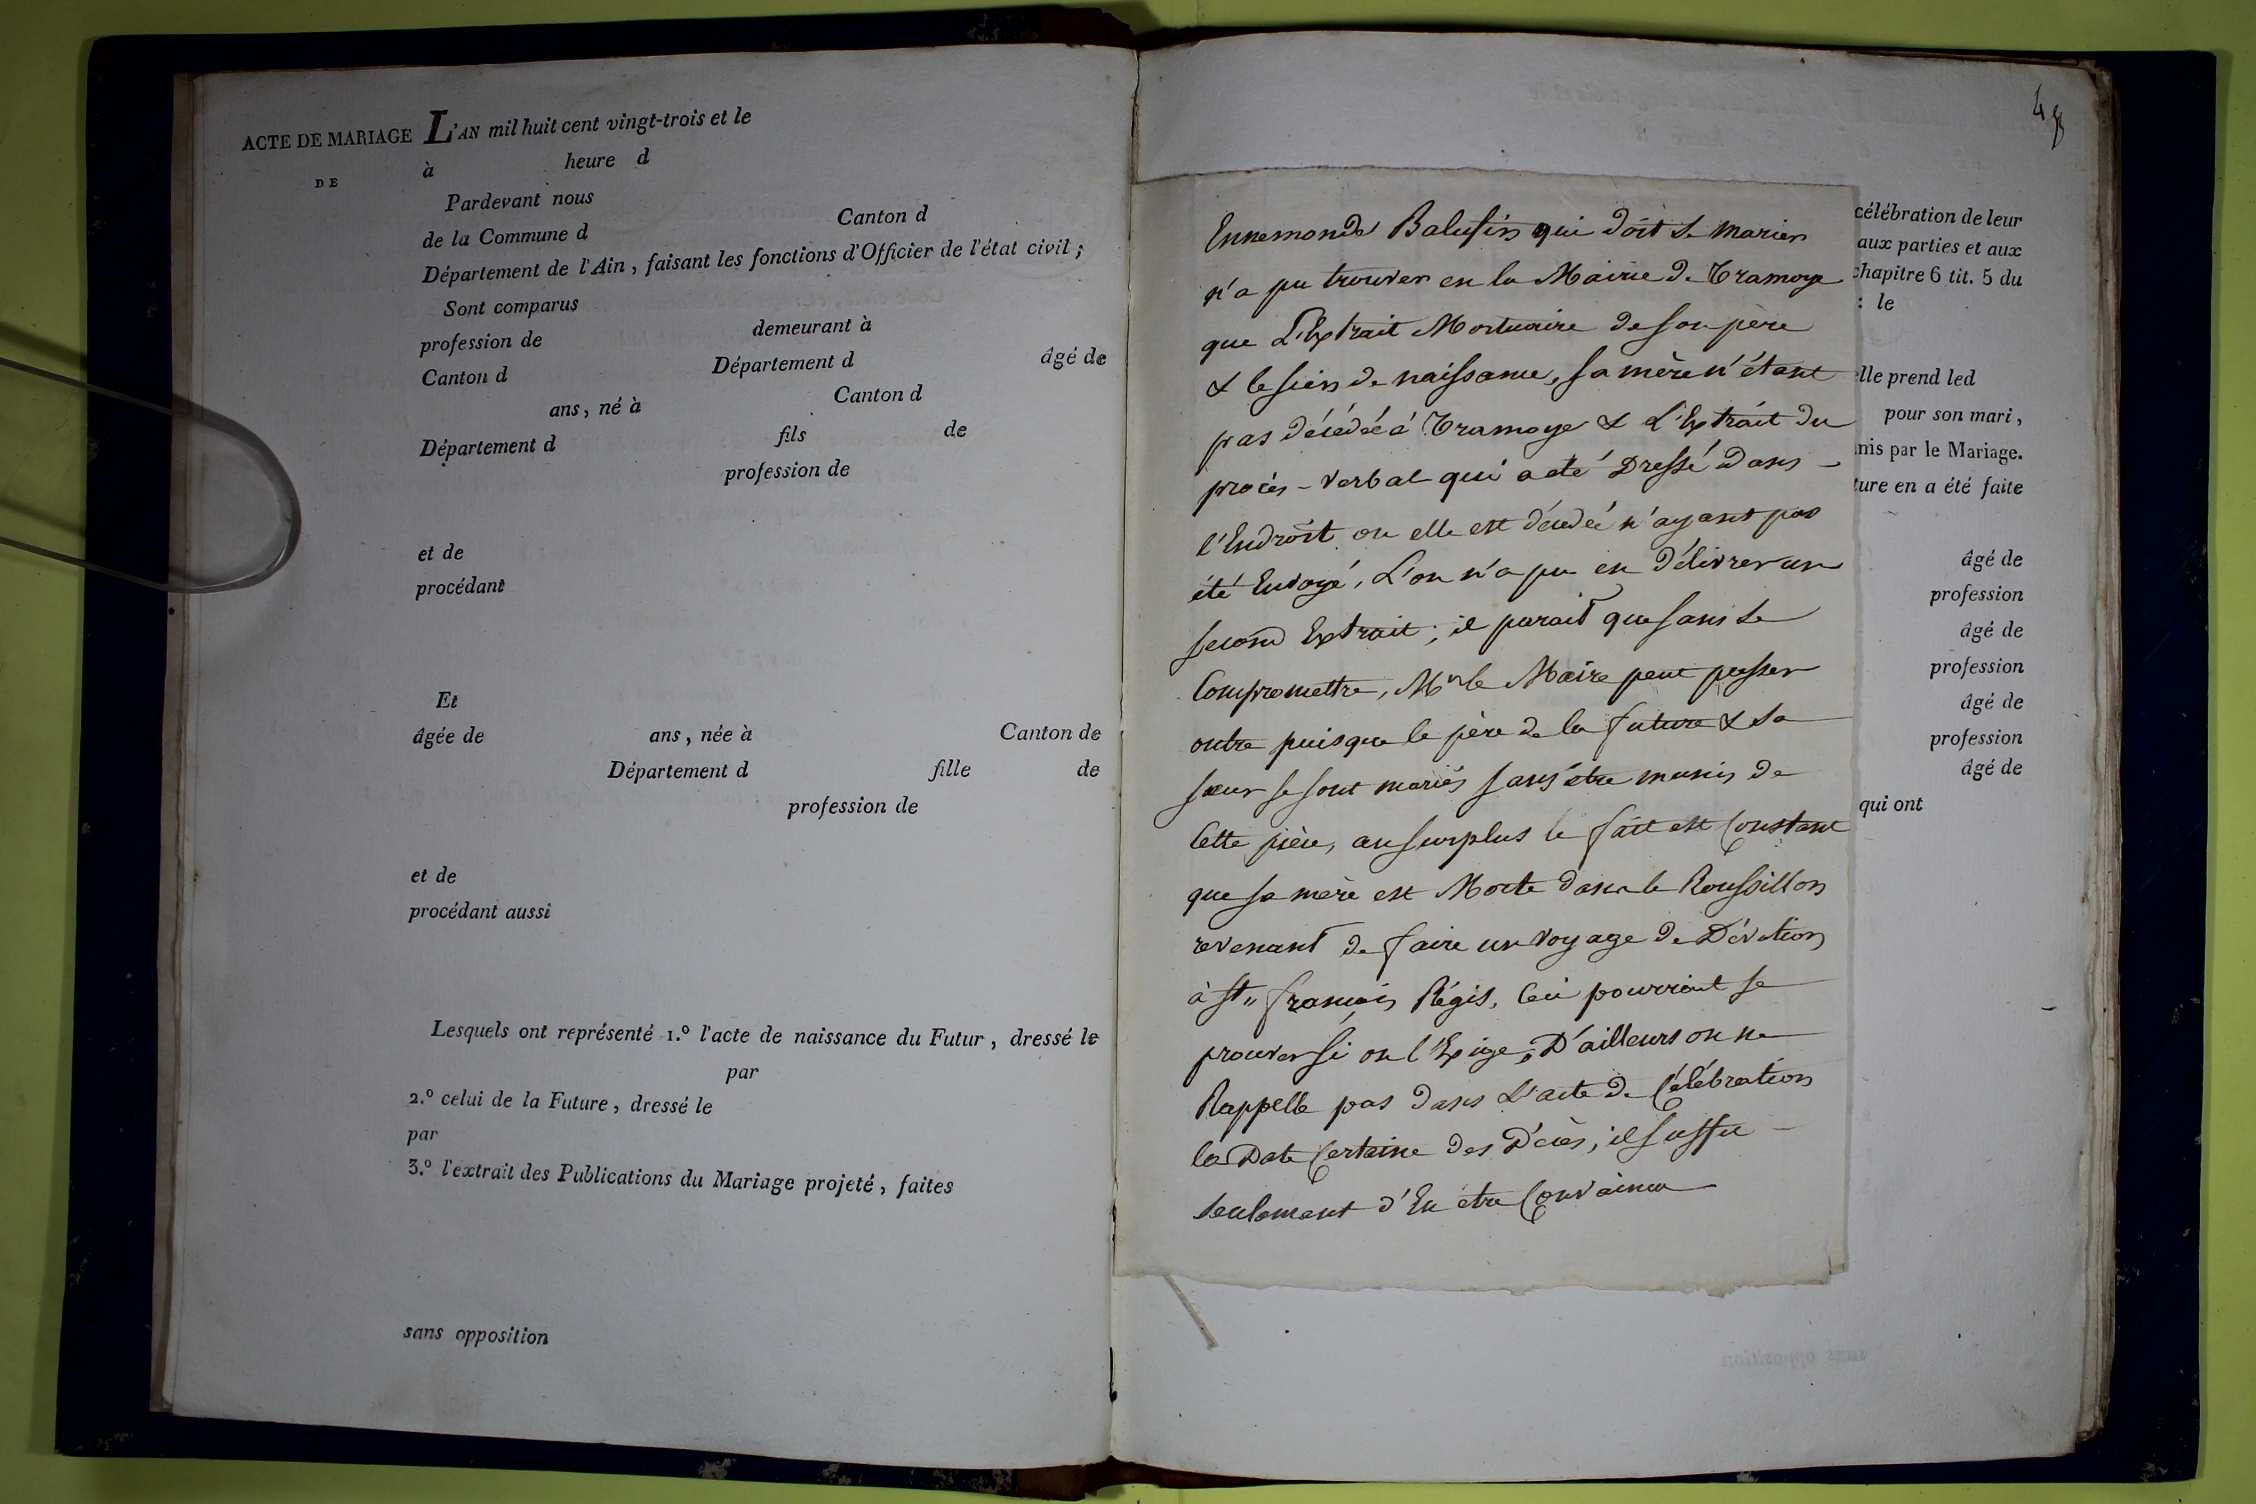 ACTE DE MARIAGE
DE
L'AN mil huit cent vingt-trois et le
à heure d
Pardevant nous
de la Commune d Canton d
Département de l'Ain, faisant les fonctions d'Officier de l'état civil;
Sont comparus
profession de demeurant à
Canton d Département d âgé de
ans, né à Canton d
Département d fils de
profession de
et de
procédant
Et
âgée de ans, née à Canton de
Département d fille de
profession de
et de
procédant aussi
Lesquels ont représenté 1.º l'acte de naissance du Futur, dressé le
par
2.º celui de la Future, dressé le
par
3.º l'extrait des Publications du Mariage projeté, faites
sans opposition
Ennemonde Balufin qui doit se marier
n'a pu trouver en la Mairie de Tramoye
que L'Extrait Mortuaire de son père
& le sien de naissance, sa mère n'étant
pas décédée à Tramoye & L'Extrait du
procès-verbal qui a été Dressé dans
l'Endroit ou elle est décédée n'ayant pas
été Envoyé, L'on n'a pu en délivrer un
second Extrait; il parait que sans se
Compromettre, Mr le Maire peut passer
outre puisque le père de la future & sa
sœur se sont mariés sans être munis de
Cette pièce, au surplus le fait est Constant
que sa mère est Morte dans le Roussillon
revenant de faire un voyage de Dévotion
à St. françois Régis, Ceci pourrait se
prouver si on l'Exige, D'ailleurs on ne
Rappelle pas dans L'acte de Célébration
la Date Certaine des Décès, il suffit
seulement d'En être Convaincu
célébration de leur
aux parties et aux
chapitre 6 tit. 5 du
: le
elle prend led
pour son mari,
nis par le Mariage.
ture en a été faite
âgé de
profession
âgé de
profession
âgé de
profession
âgé de
qui ont